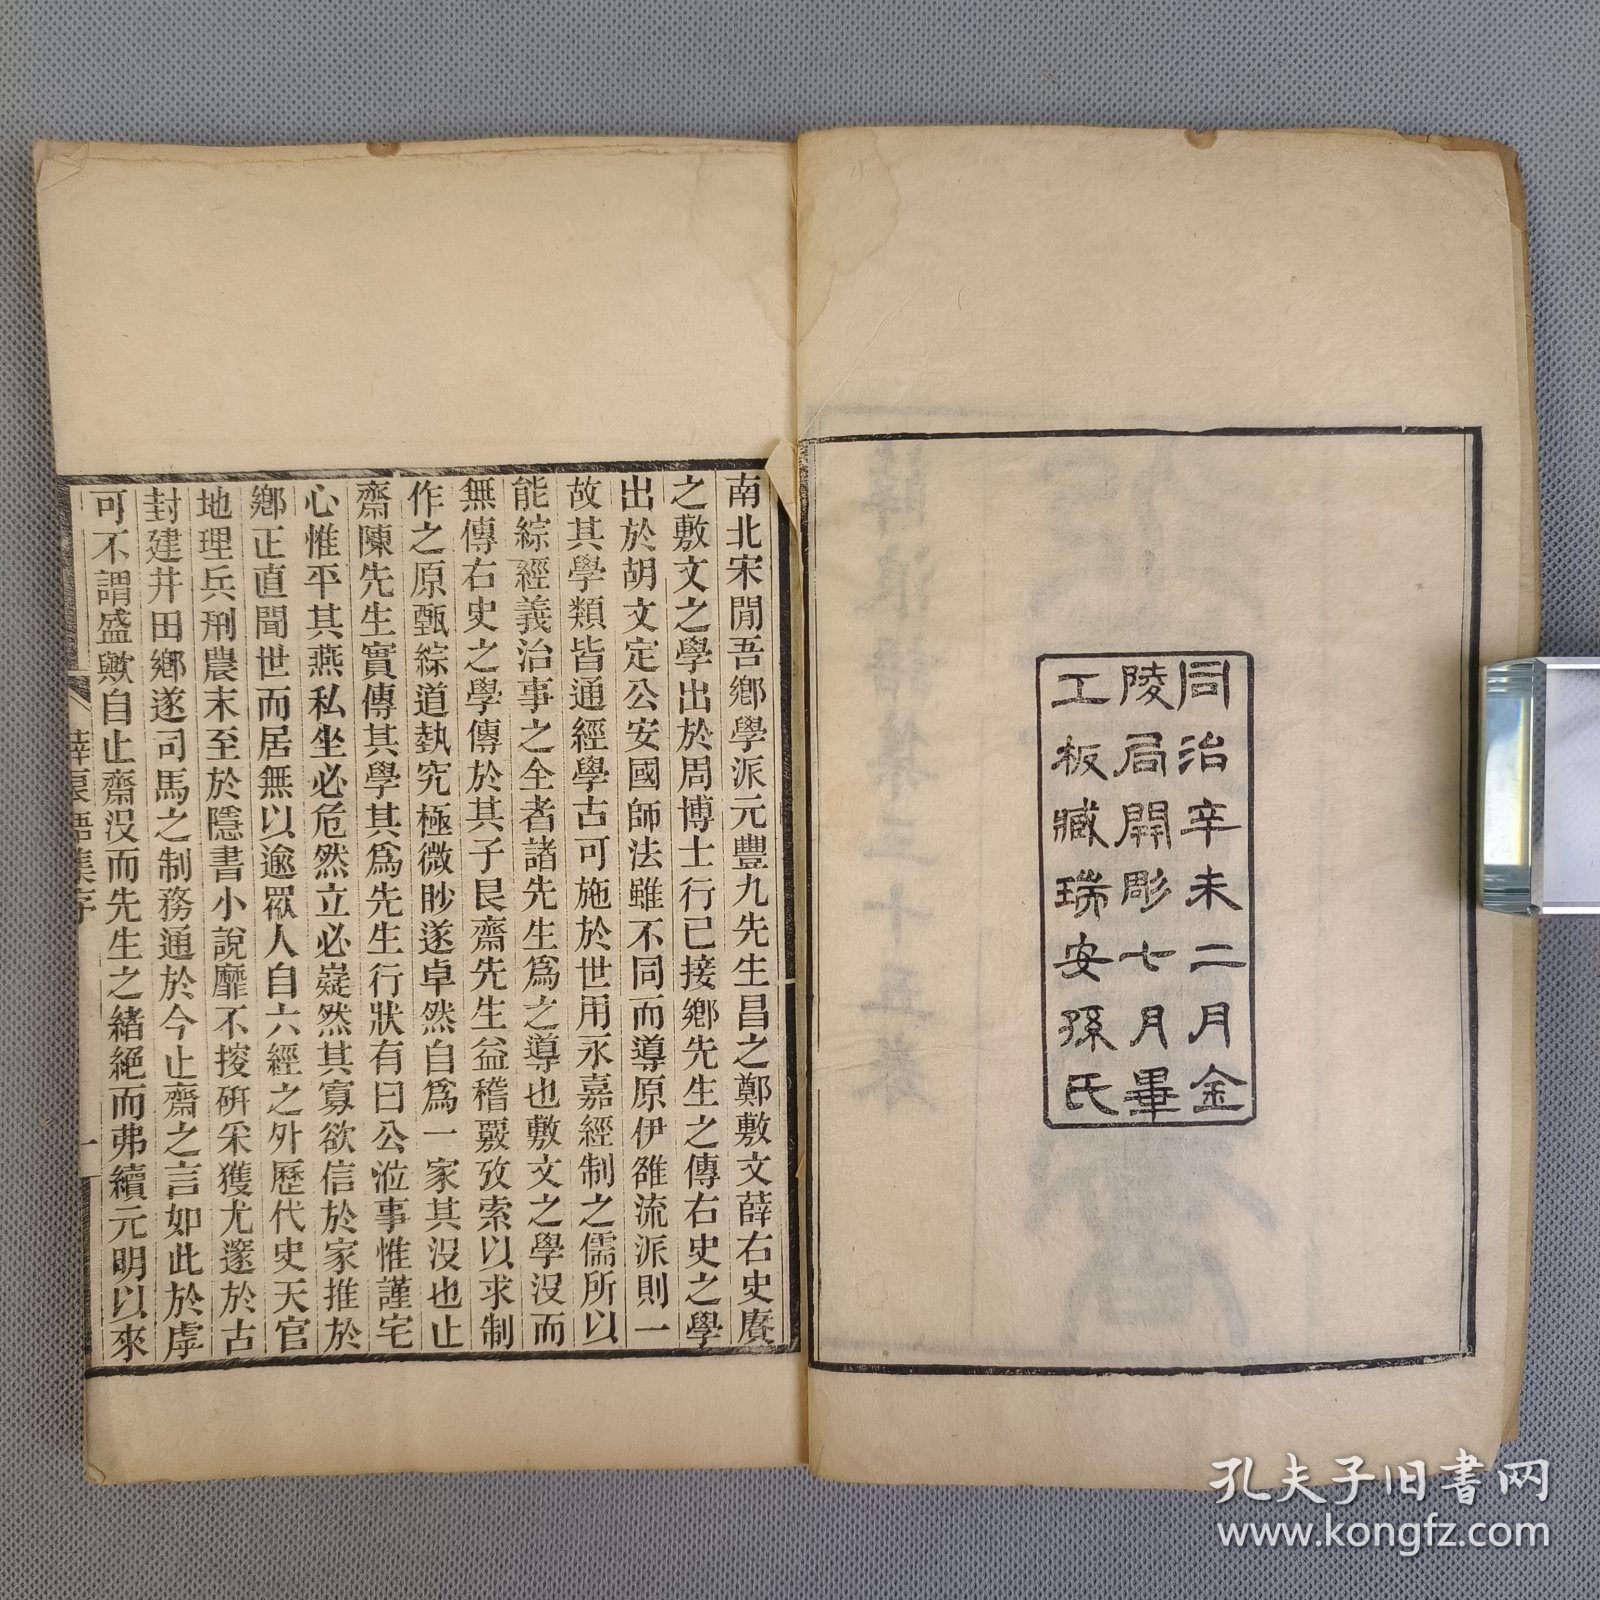 同治辛未二月金
陵局開彫七月畢
工板臧瑞安孫氏
南北宋閒吾鄉學派元豐九先生昌之鄭敷文薛右史賡
之敷文之學出於周博士行已接鄉先生之傳右史之學
出於胡文定公安國師法雖不同而導原伊雒流派則一
故其學類皆通經學古可施於世用永嘉經制之儒所以
能綜經義治事之全者諸先生爲之導也敷文之學沒而
無傳右史之學傳於其子艮齋先生益稽覈攷索以求制
作之原甄綜道埶究極微眇遂卓然自爲一家其沒也止
齋陳先生實傳其學其爲先生行狀有曰公涖事惟謹宅
心惟平其燕私坐必危然立必嶷然其寡欲信於家推於
鄉正直聞世而居無以逾眾人自六經之外歷代史天官
地理兵刑農末至於隱書小說靡不搜研采獲尤邃於古
封建井田鄉遂司馬之制務通於今止齋之言如此於虖
可不謂盛歟自止齋沒而先生之緒絕而弗續元明以來
薛浪語集序
一
孔夫子旧书网
www.kongfz.com